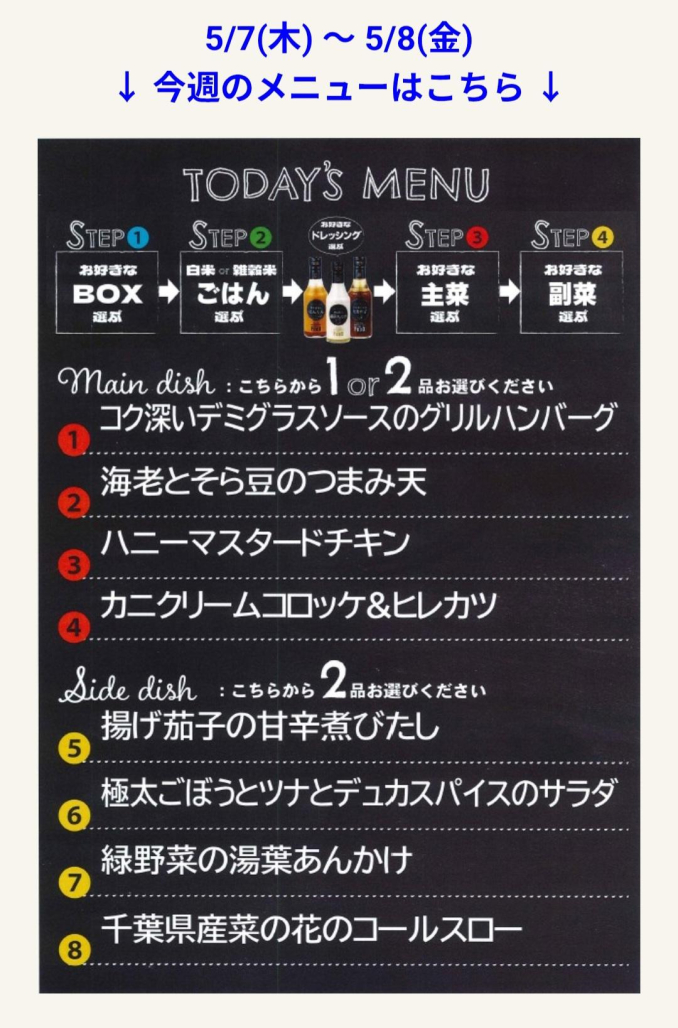 5/7(木) ～ 5/8(金)
↓ 今週のメニューはこちら ↓
TODAY'S MENU
STEP 1
お好きな
BOX
選ぶ
STEP 2
白米 or 雑穀米
ごはん
選ぶ
お好きな
ドレッシング
選ぶ
STEP 3
お好きな
主菜
選ぶ
STEP 4
お好きな
副菜
選ぶ
Main dish : こちらから 1 or 2 品お選びください
1 コク深いデミグラスソースのグリルハンバーグ
2 海老とそら豆のつまみ天
3 ハニーマスタードチキン
4 カニクリームコロッケ&ヒレカツ
Side dish : こちらから 2 品お選びください
5 揚げ茄子の甘辛煮びたし
6 極太ごぼうとツナとデュカスパイスのサラダ
7 緑野菜の湯葉あんかけ
8 千葉県産菜の花のコールスロー